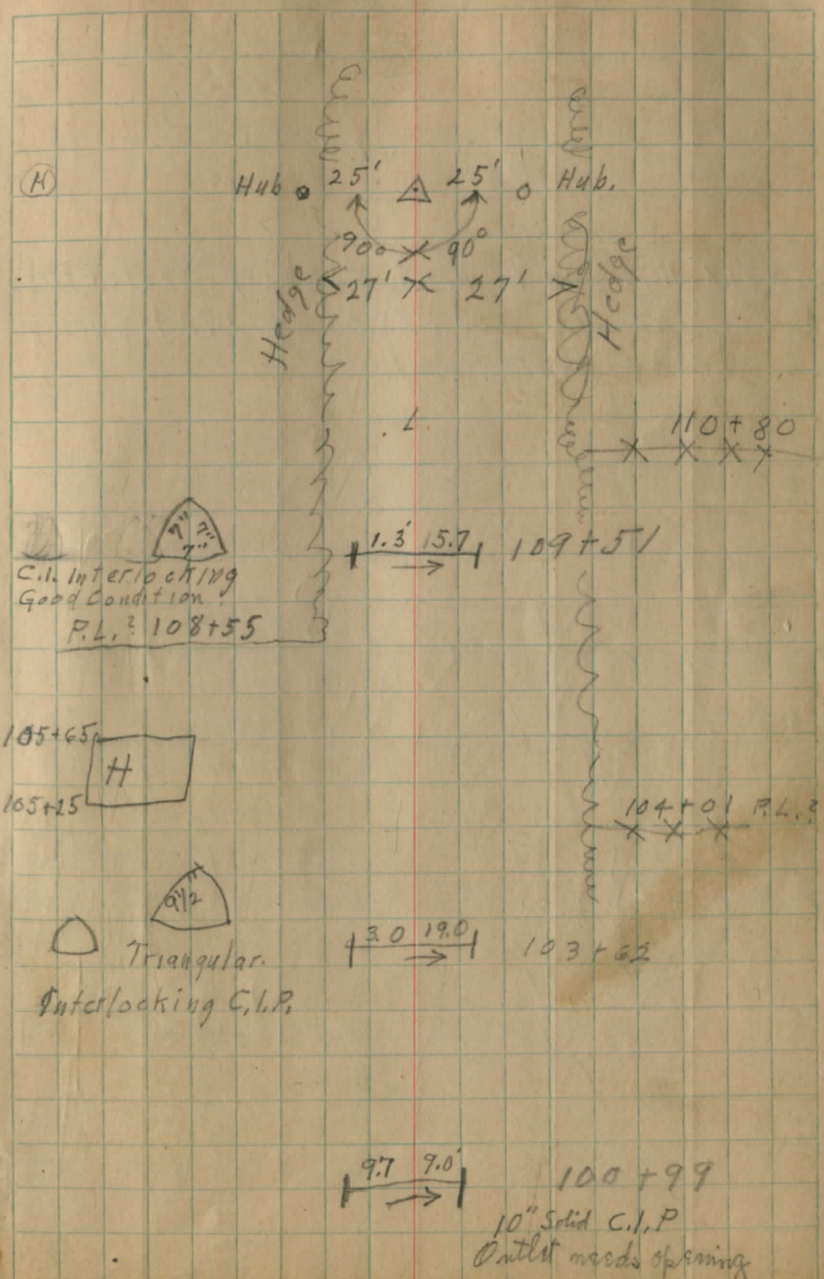 (H) Hub 25' 25' Hub.
90° 90°
27' 27'
Hedge
Hedge
110+80
7" 7"
7"
1.3' 15.7 109+51
C.I. Interlocking
Good Condition.
P.L.? 108+55
105+65
H
105+25
104+01 P.L.?
9 1/2"
3.0 19.0 103+62
Triangular.
Interlocking C.I.P.
9.7 9.0' 100+99
10" Solid C.I.P
Outlet needs opening